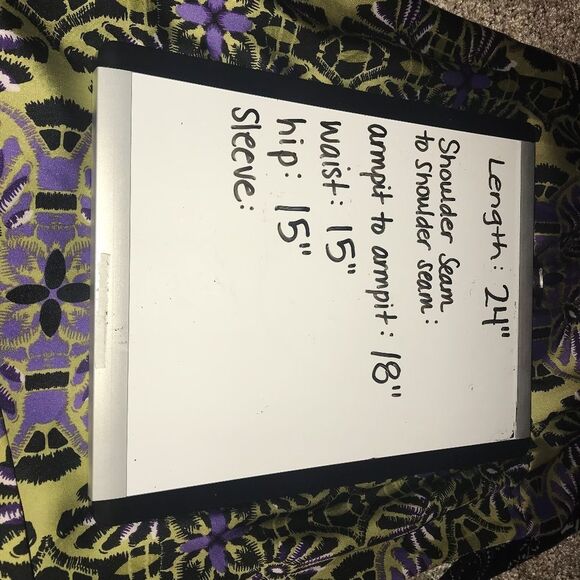 Length: 24"
Shoulder Seam
to shoulder seam:
armpit to armpit: 18"
waist: 15"
hip: 15"
Sleeve: